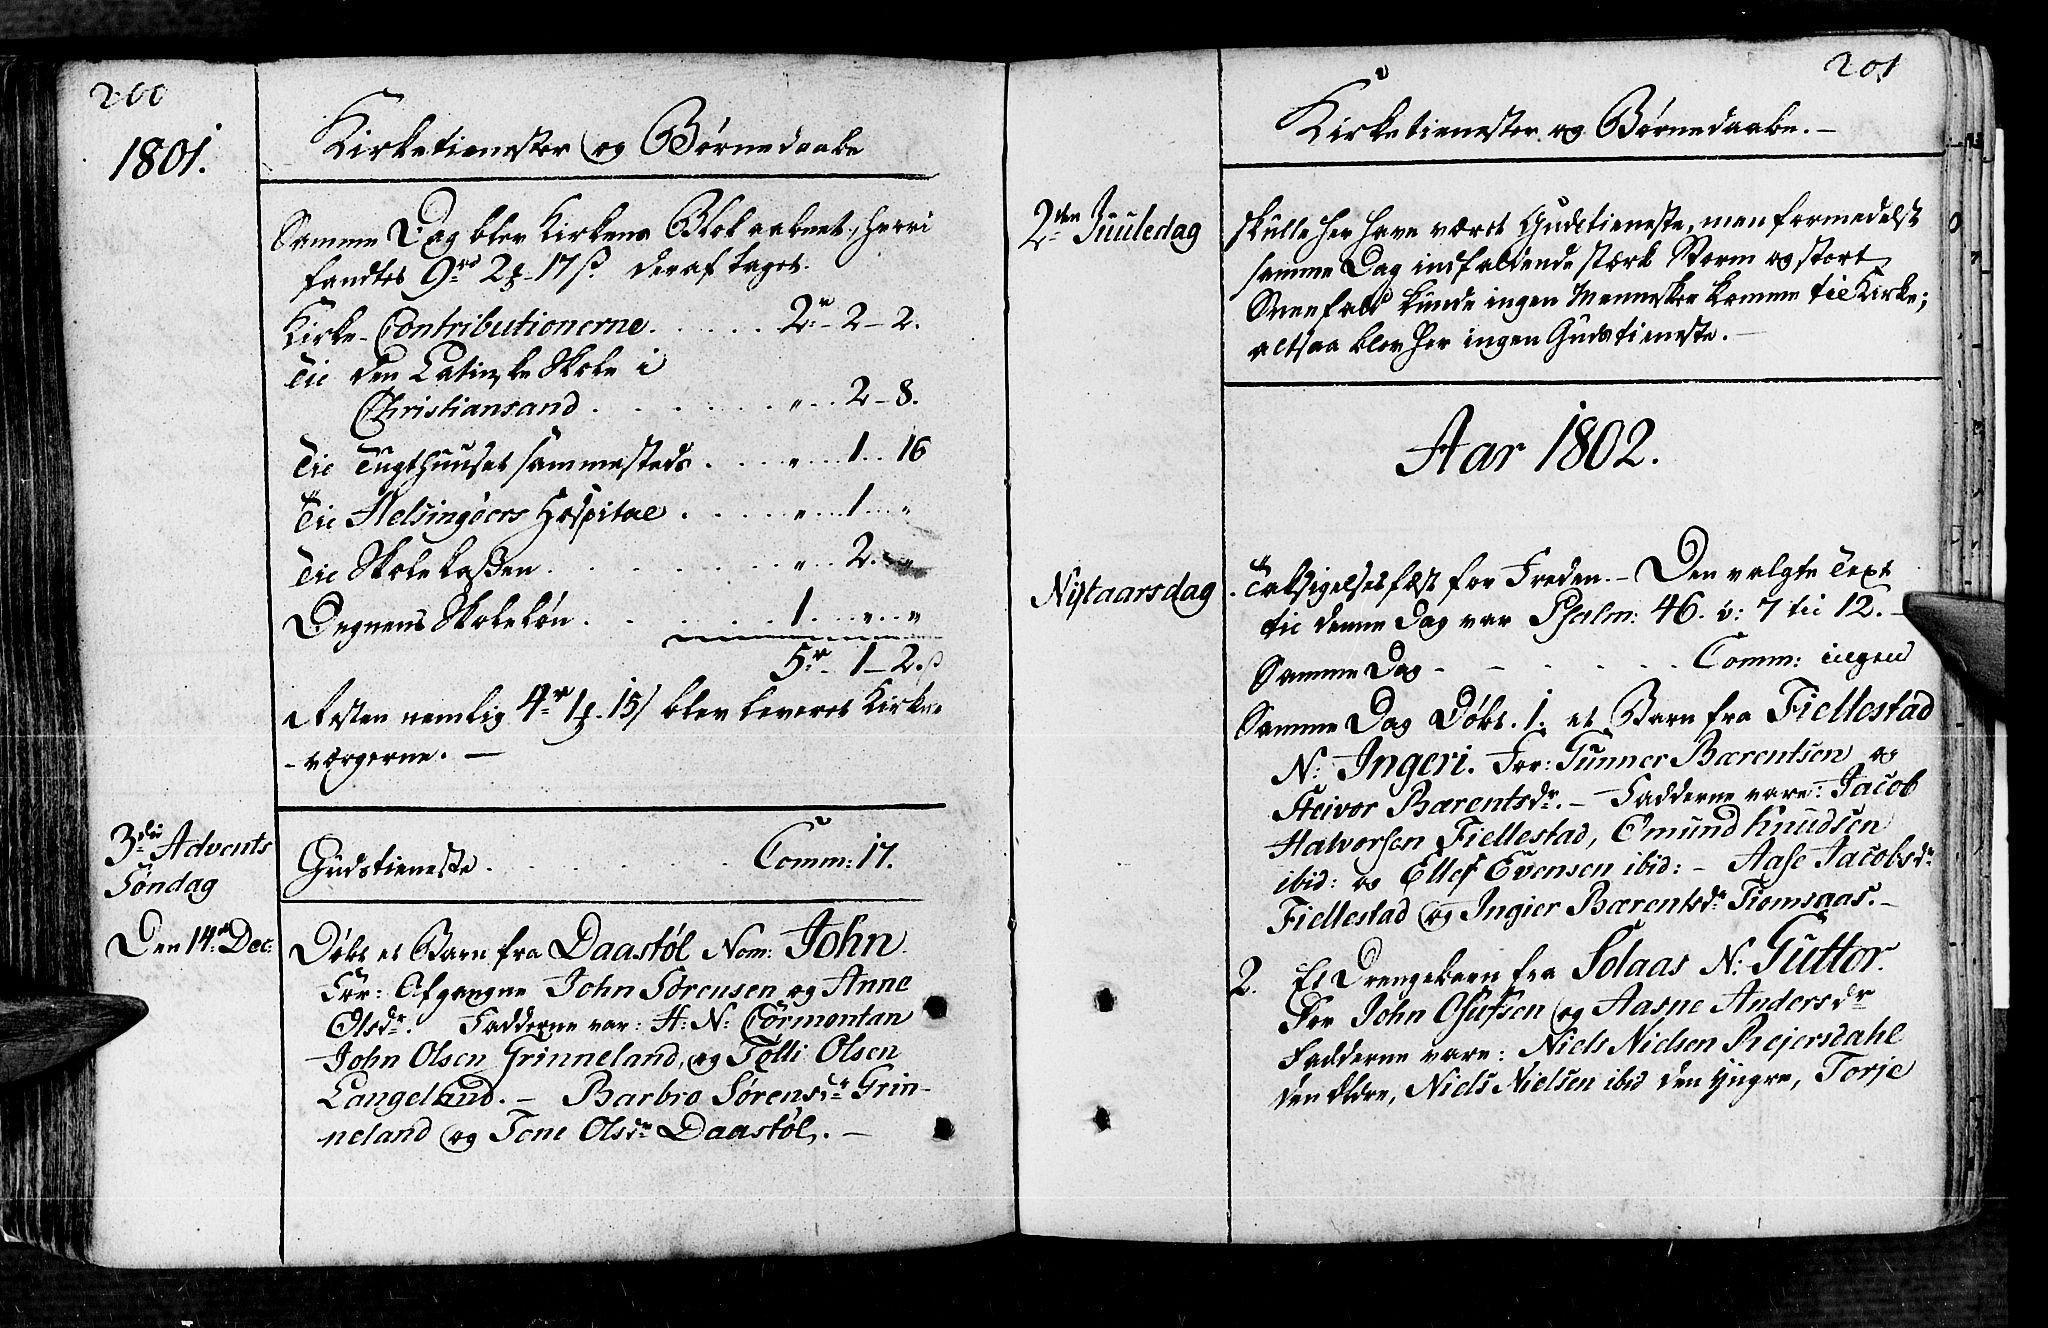 200
1801.
Kirketienester og Børnedaabe
Samme Dag blev Kirkens Blok aabnet, hvori
fandtes 9rd 2ƒ 17ß deraf taget.
Kirke-Contributionerne. . . . . . 2r - 2 - 2.
Til den Latinske Skole i
Christiansand . . . . . . " . . 2 - 8.
Til Tugthuuset sammesteds . . . . " . . 1 . . 16
Til Helsingøers Hospital . . . . " . . 1 . . "
Til Skolekaßen . . . . . . " . . 2 . "
Degnens Skoleløn . . . . . . 1 . . " . . "
5r - 1 - 2ß
Resten nemlig 4r 1ƒ 15ß blev leveret Kirke
- værgerne. —
3de Advents
Søndag
Gudstieneste . . . . . . Comm: 17.
Den 14de Dec:
Døbt et Barn fra Daastøl Nom: John
For: Afgangne John Sørensen og Anne
Olsdr. Fadderne var: H: N: Cormontan
John Olsen Grinneland, og Tølli Olsen
Langeland. — Barbro Sørensdr Grin-
neland og Tone Olsdr Daastøl. —
201
Kirketienester og Børnedaabe. —
2den Juuledag
skulle her have været Gudstieneste, men formedelst
samme Dag indfaldende stærk Storm og stort
Sneefald kunde ingen Mennesker komme til Kirke;
altsaa blev her ingen Gudstieneste. —
Aar 1802.
Nÿtaarsdag
Taksigelsesfæst for Freden. — Den valgte Text
til denne Dag var Psalm: 46. v: 7 til 12. —
Samme Dag - - . . . . Comm: ingen
Samme Dag Døbt. 1. et Barn fra Fiellestad
N: Ingeri. For: Gunner Bærentsen og
Steivor Bærentsdr. — Fadderne vare: Jacob
Halvorsen Fiellestad, Omund Knudsen
ibid: og Ellef Evensen ibid: — Aase Jacobsdr
Fiellestad og Ingier Bærentsdr Tiomsaas. —
2. Et Drengebarn fra Solaas N: Guttor.
For John Osulfsen og Aasne Andersdr
Fadderne vare: Niels Nielsen Rejersdahl
den Eldre, Niels Nielsen ibid den Yngre, Torje